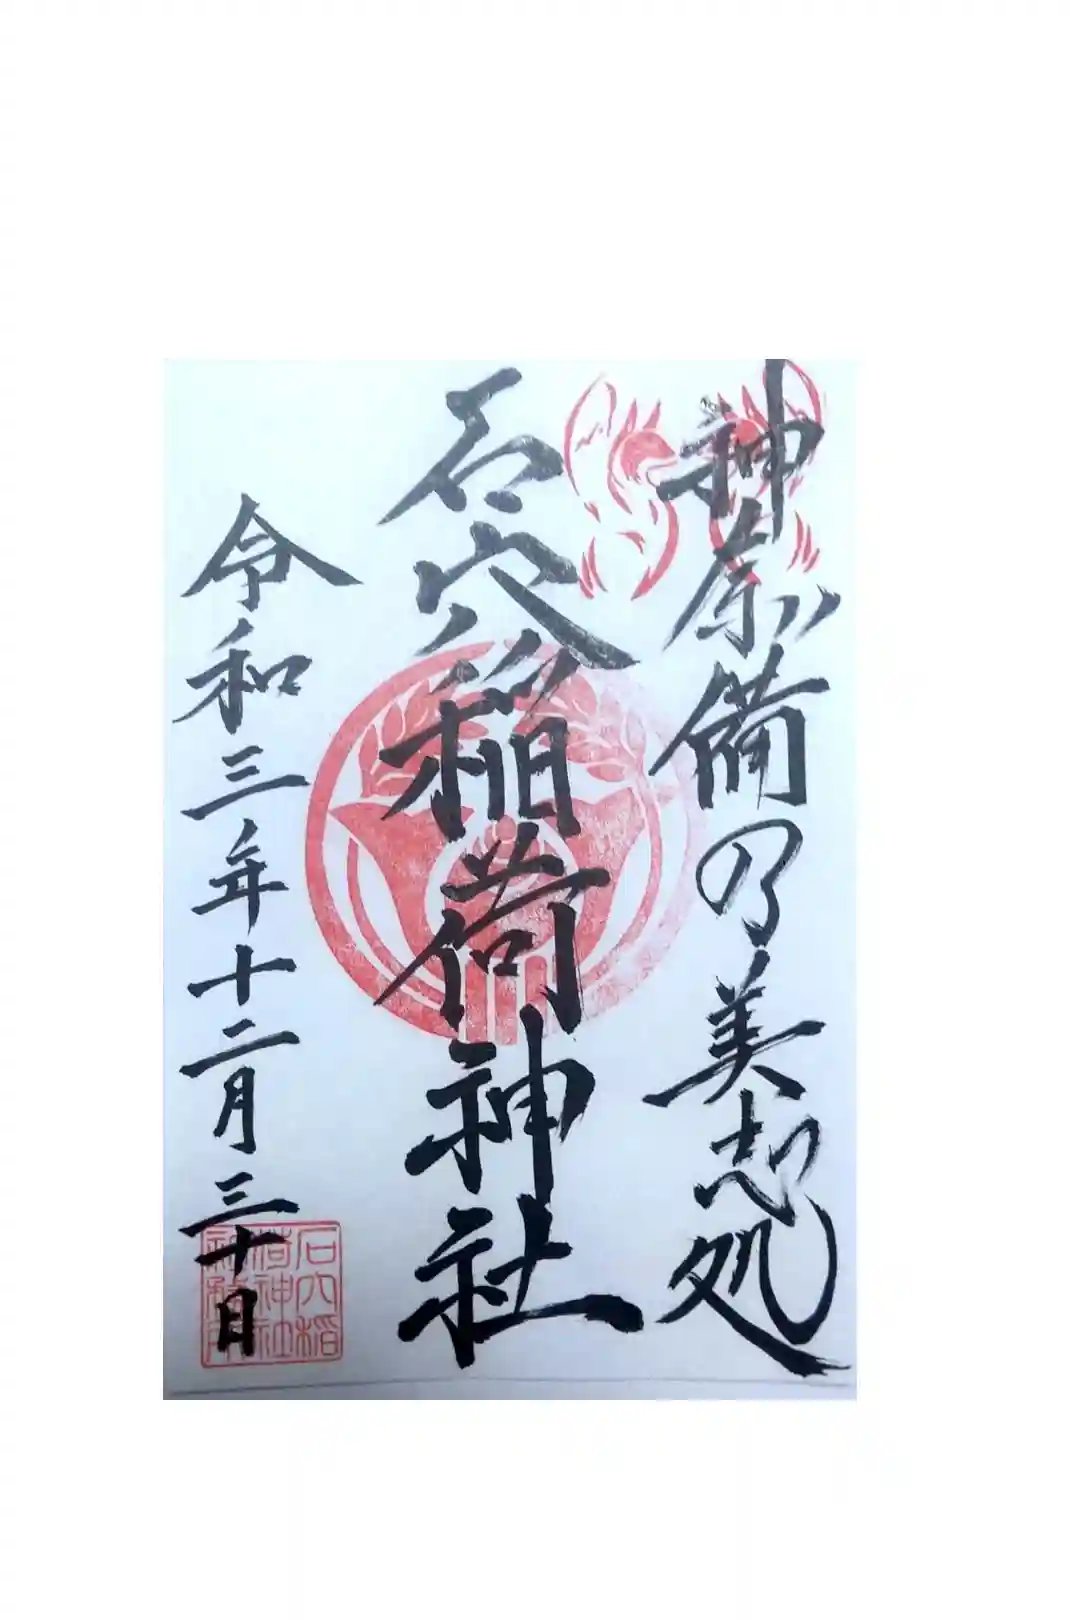 神奈備の美志処
石穴稲荷神社
令和三年十二月三十日
石穴稲
荷神社